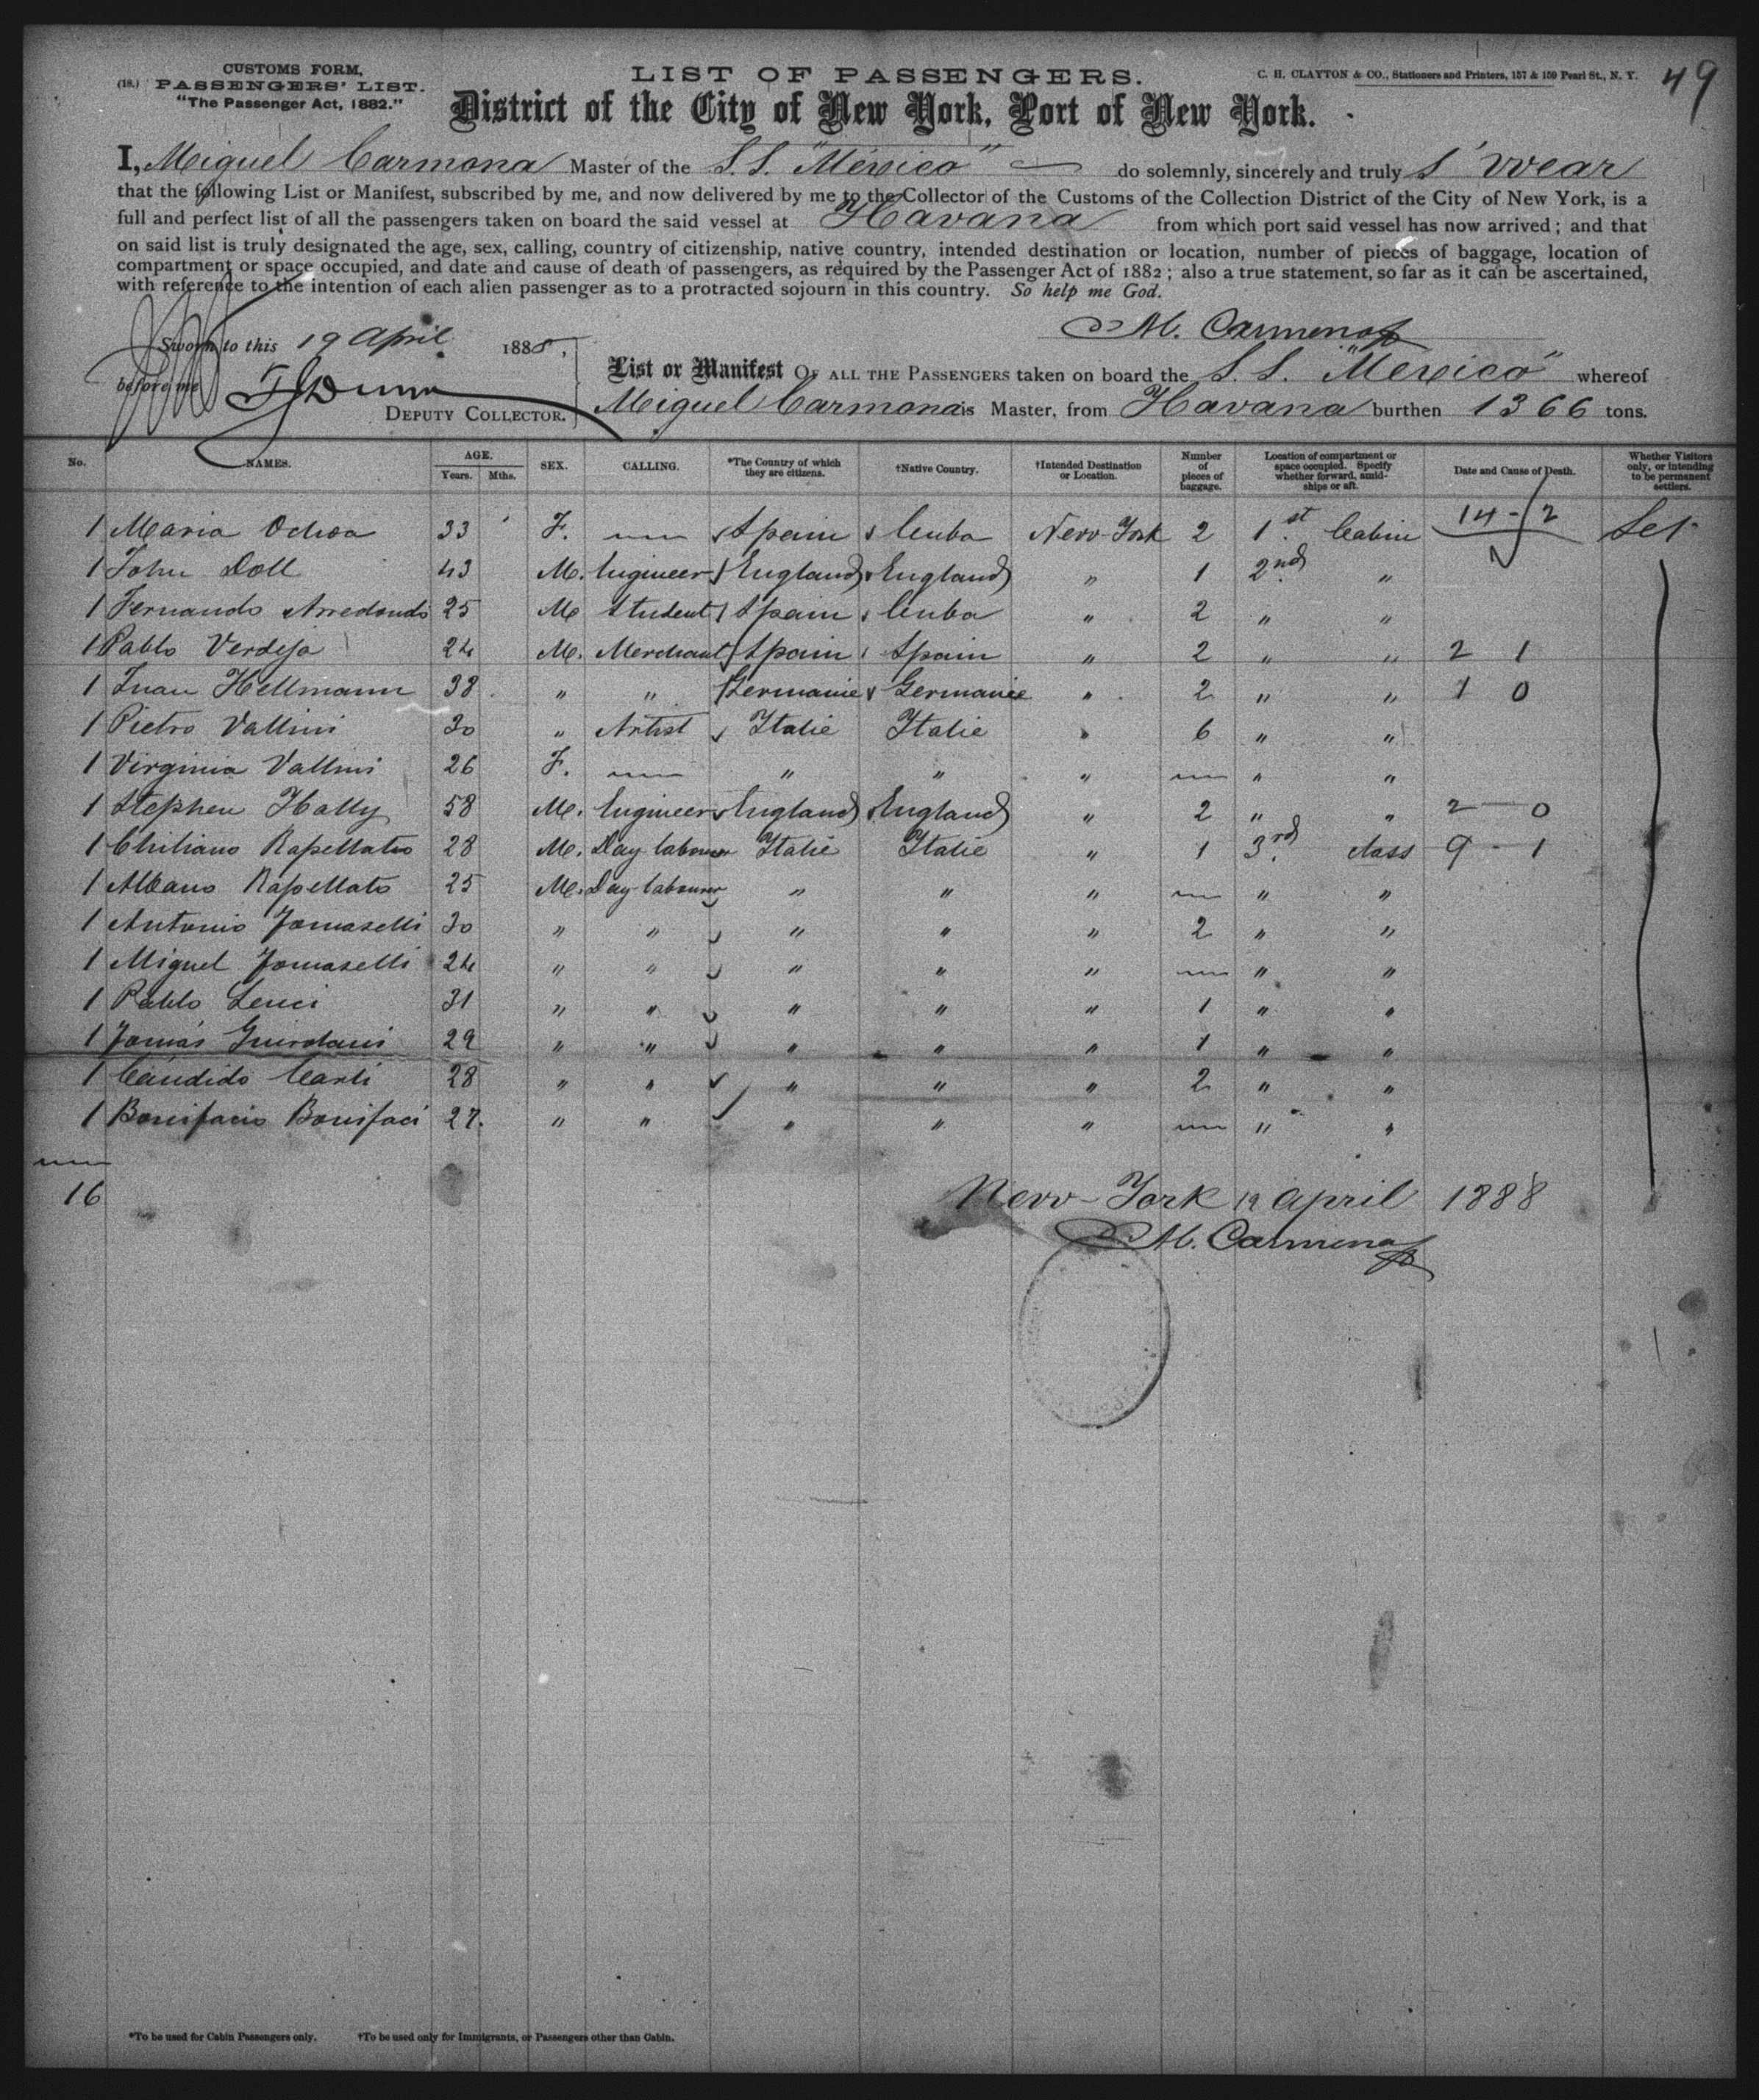 CUSTOMS FORM,
(18.) PASSENGERS' LIST.
"The Passenger Act, 1882."
LIST OF PASSENGERS.
C. H. CLAYTON & CO., Stationers and Printers, 157 & 159 Pearl St., N. Y.
49
District of the City of New York, Port of New York.
I, Miguel Carmona Master of the S.S. "Mexico" do solemnly, sincerely and truly s'wear
that the following List or Manifest, subscribed by me, and now delivered by me to the Collector of the Customs of the Collection District of the City of New York, is a
full and perfect list of all the passengers taken on board the said vessel at Havana from which port said vessel has now arrived; and that
on said list is truly designated the age, sex, calling, country of citizenship, native country, intended destination or location, number of pieces of baggage, location of
compartment or space occupied, and date and cause of death of passengers, as required by the Passenger Act of 1882; also a true statement, so far as it can be ascertained,
with reference to the intention of each alien passenger as to a protracted sojourn in this country. So help me God.
M. Carmona
Sworn to this 19 April 1888,
before me
DEPUTY COLLECTOR.
List or Manifest OF ALL THE PASSENGERS taken on board the S. S. "Mexico" whereof
Miguel Carmona is Master, from Havana burthen 1366 tons.
No. NAMES. AGE. Years. Mths. SEX. CALLING. *The Country of which they are citizens. †Native Country. †Intended Destination or Location. Number of pieces of baggage. Location of compartment or space occupied. Specify whether forward, amidships or aft. Date and Cause of Death. Whether Visitors only, or intending to be permanent settlers.
1 Maria Ochoa 33 F. — Spain Cuba New-York 2 1st. Cabin 14 - 2 Set
1 John Doll 43 M. Engineer England England " 1 2nd. "
1 Fernando Arredondo 25 M Student Spain Cuba " 2 " "
1 Pablo Verdeja 24 M. Merchant Spain Spain " 2 " " 2 1
1 Juan Hellmann 38 " " Germanie Germanie " 2 " " 1 0
1 Pietro Vallini 30 " Artist Italie Italie " 6 " "
1 Virginia Vallini 26 F. — " " " — " "
1 Stephen Hally 58 M. Engineer England England " 2 " " 2 - 0
1 Rapellato 28 M. Day labourer Italie Italie " 1 3rd. class 9 - 1
1 Albano Rapellato 25 M. Day labourer " " " — " "
1 Antonio Tomaselli 30 " " " " " 2 " "
1 Miguel Tomaselli 24 " " " " " — " "
1 Pablo Lenci 31 " " " " " 1 " "
1 Tomás 29 " " " " " 1 " "
1 Cándido Carli 28 " " " " " 2 " "
1 Bonifacio Bonifaci 27. " " " " " — " "
16
New-York 19 April 1888
M. Carmona
*To be used for Cabin Passengers only. †To be used only for Immigrants, or Passengers other than Cabin.